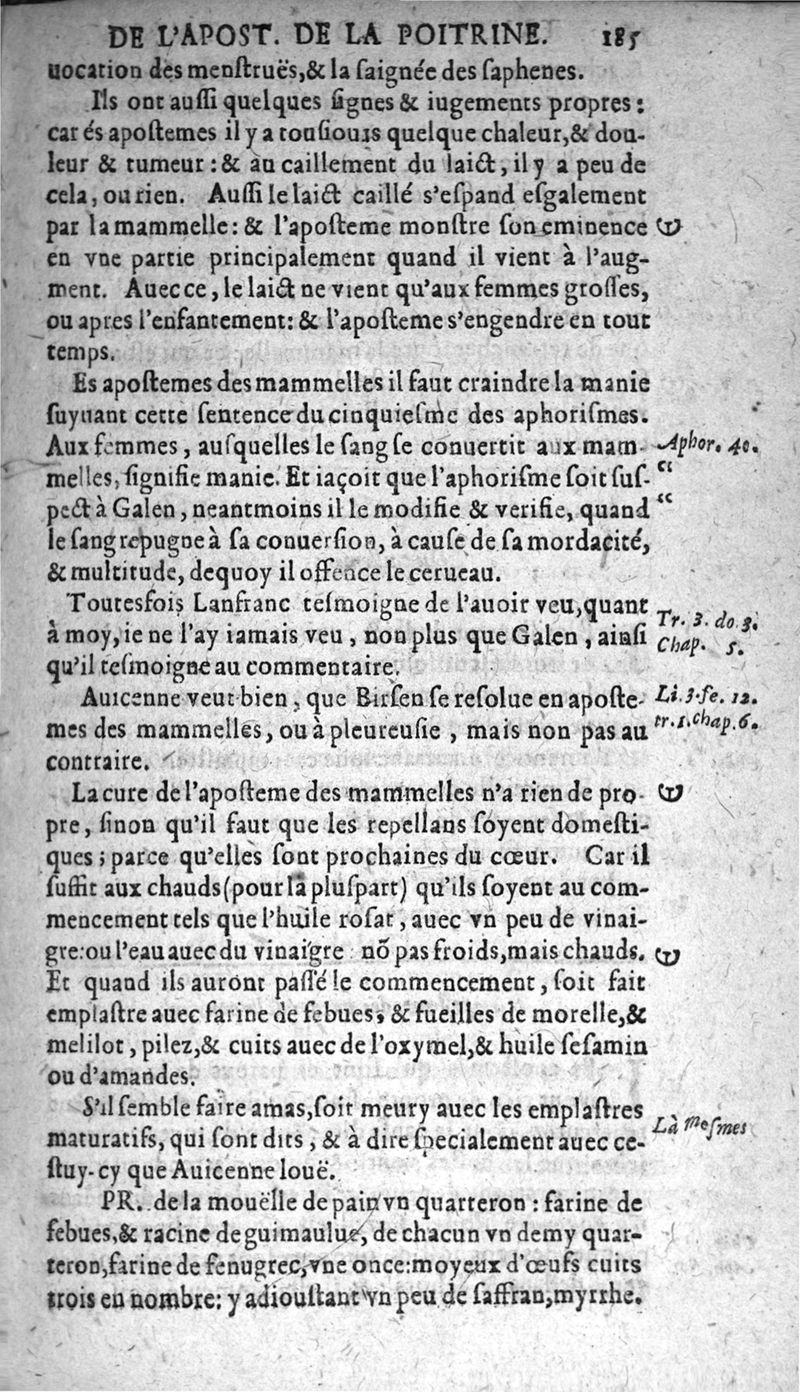 DE L'APOST. DE LA POITRINE. 185
uocation des menſtruës,& la ſaignée des ſaphenes.
Ils ont auſſi quelques ſignes & iugements propres :
car és apoſtemes il y a touſiours quelque chaleur,& dou-
leur & tumeur : & au caillement du laict, il y a peu de
cela, ou rien. Auſſi le laict caillé s'eſpand eſgalement
par la mammelle: & l'apoſteme monſtre ſon eminence
en vne partie principalement quand il vient à l'aug-
ment. Auec ce, le laict ne vient qu'aux femmes groſſes,
ou apres l'enfantement: & l'apoſteme s'engendre en tout
temps.
Es apoſtemes des mammelles il faut craindre la manie
ſuyuant cette ſentence du cinquieſme des aphoriſmes.
Aux femmes, auſquelles le ſang ſe conuertit aux mam- Aphor. 40.
melles, ſignifie manie. Et iaçoit que l'aphoriſme ſoit ſuſ- “
pect à Galen, neantmoins il le modifie & verifie, quand “
le ſang repugne à ſa conuerſion, à cauſe de ſa mordacité,
& multitude, dequoy il offence le cerueau.
Toutesfois Lanfranc teſmoigne de l'auoir veu, quant Tr. 3. do 3.
à moy, ie ne l'ay iamais veu, non plus que Galen, ainſi Chap. 5.
qu'il teſmoigne au commentaire.
Auicenne veut bien, que Birſen ſe reſolue en apoſte- Li. 3. fe. 12.
mes des mammelles, ou à pleureuſie, mais non pas au tr. 1. Chap. 6.
contraire.
La cure de l'apoſteme des mammelles n'a rien de pro-
pre, ſinon qu'il faut que les repellans ſoyent domeſti-
ques ; parce qu'elles ſont prochaines du cœur. Car il
ſuffit aux chauds (pour la pluſpart) qu'ils ſoyent au com-
mencement tels que l'huile roſat, auec vn peu de vinai-
gre: ou l'eau auec du vinaigre nõ pas froids, mais chauds.
Et quand ils auront paſſé le commencement, ſoit fait
emplaſtre auec farine de febues, & fueilles de morelle,&
melilot, pilez,& cuits auec de l'oxymel,& huile ſeſamin
ou d'amandes.
S'il ſemble faire amas, ſoit meury auec les emplaſtres
maturatifs, qui ſont dits, & à dire ſpecialement auec ce- Là meſmes
ſtuy-cy que Auicenne louë.
PR. de la mouëlle de pain vn quarteron : farine de
febues,& racine de guimaulue, de chacun vn demy quar-
teron, farine de fenugrec, vne once: moyeux d'œufs cuits
trois en nombre: y adiouſtant vn peu de ſaffran, myrrhe.